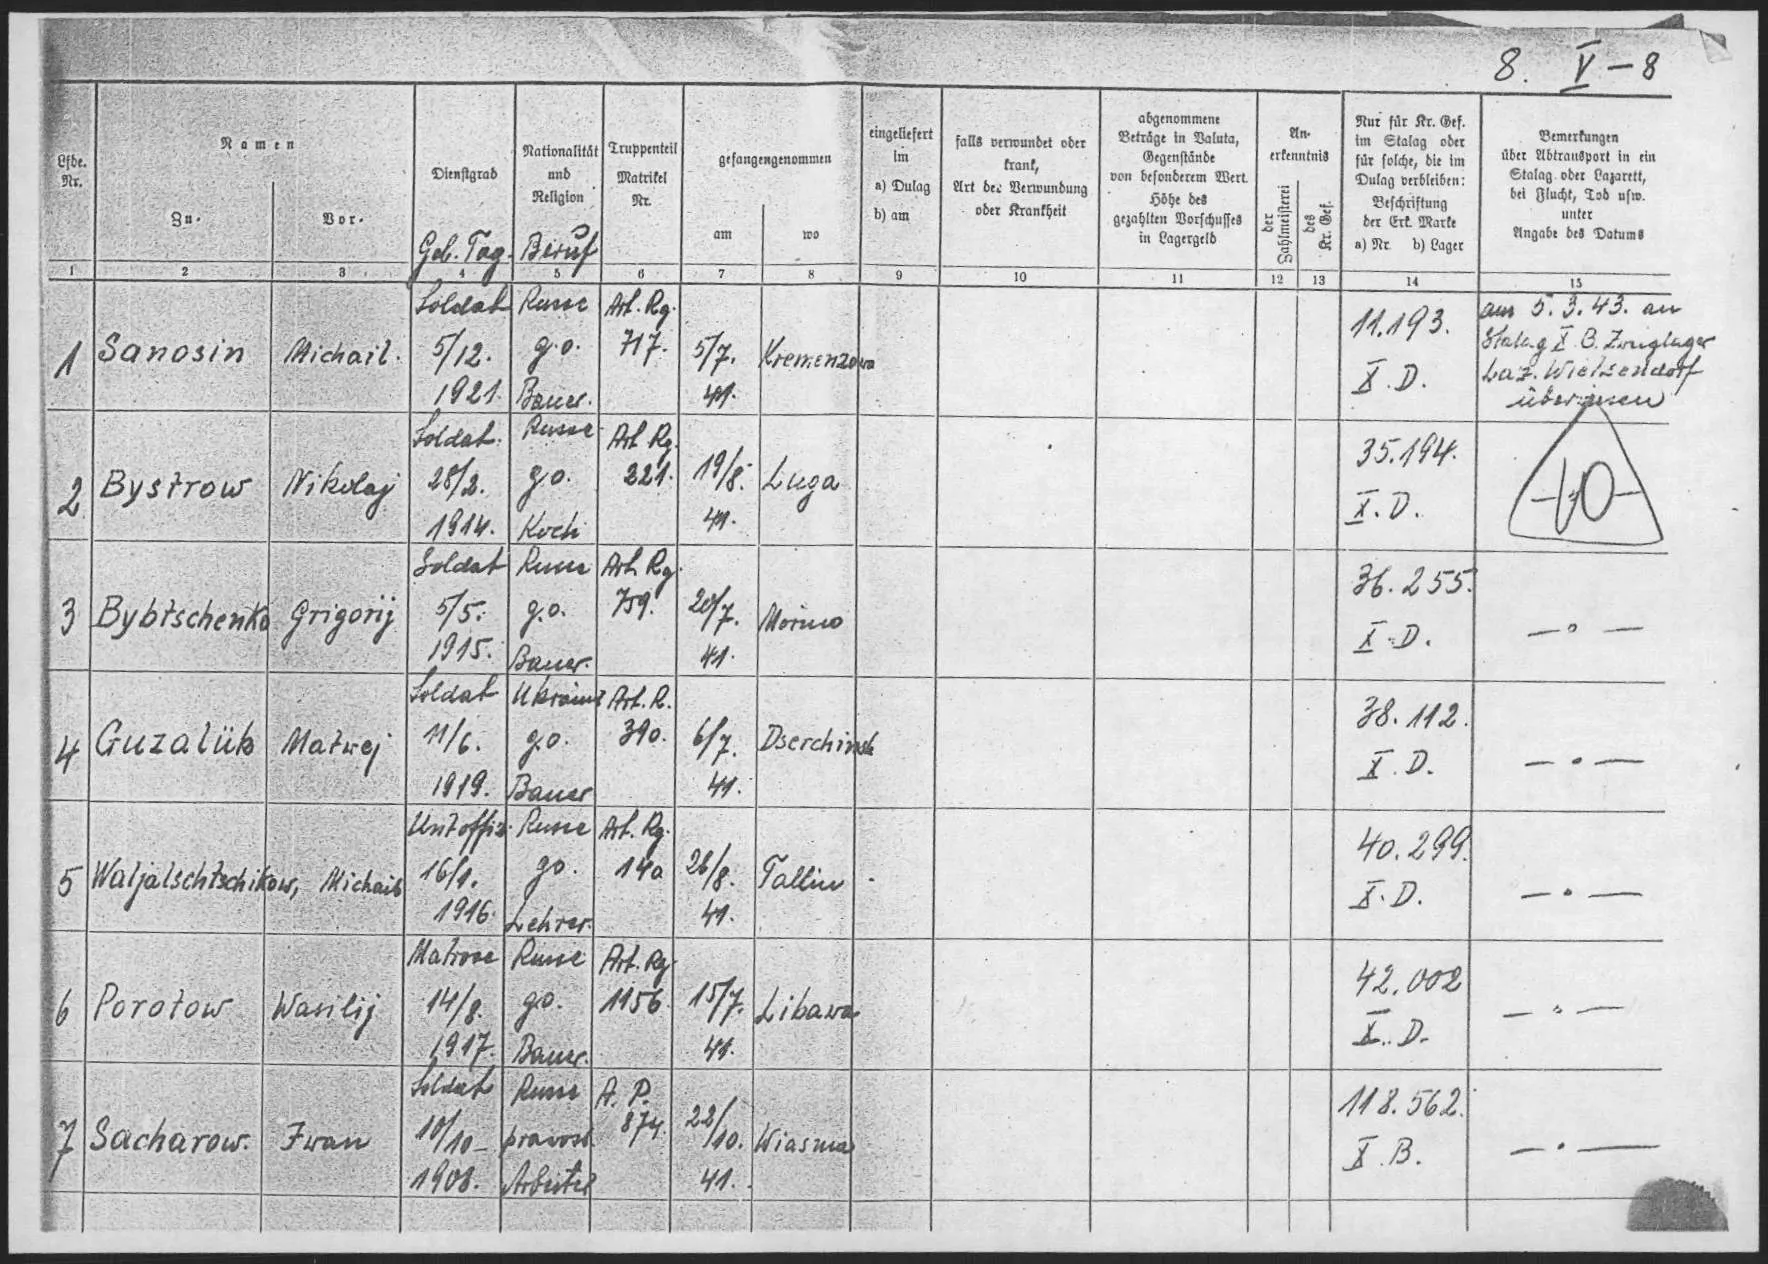 8. V – 8
Lfde. Nr.
Namen
Zu-
Vor-
Dienstgrad
Geb. Tag.
Nationalität und Religion
Beruf
Truppenteil
Matrikel Nr.
gefangengenommen
am
wo
eingeliefert im
a) Dulag
b) am
falls verwundet oder krank,
Art der Verwundung oder Krankheit
abgenommene Beträge in Valuta,
Gegenstände von besonderem Wert.
Höhe des gezahlten Vorschusses in Lagergeld
An-
erkenntnis
der Zahlmeisterei
des Kr. Gef.
Nur für Kr. Gef. im Stalag oder
für solche, die im Dulag verbleiben:
Beschriftung der Erk. Marke
a) Nr. b) Lager
Bemerkungen
über Abtransport in ein
Stalag oder Lazarett,
bei Flucht, Tod usw.
unter
Angabe des Datums
1 2 3 4 5 6 7 8 9 10 11 12 13 14 15
Soldat Russe Art. Rg.
1 Sanosin Michail. 5/12. g.o. 717. 5/7. Kremenzowa 11.193.
1921. Bauer. 41. X.D.
am 5.3.43. an
Stalag X.B. Zweiglager
Laz. Wietzendorf
überwiesen
Soldat. Russe Art. Rg.
2 Bystrow Nikolaj 28/2. g.o. 221. 19/8. Luga 35.194.
1914. Koch 41. X.D.
Soldat Russe Art. Rg.
3 Bybtschenko Grigorij 5/5. g.o. 759. 20/7. 36.255.
1915. Bauer. 41. X.D. — " —
Soldat Ukrainer Art. R.
4 Guzalük Matwej 11/6. g.o. 390. 6/7. Dserchinsk 38.112.
1919. Bauer 41. X.D. — " —
Untoffiz. Russe Art. Rg.
5 Waljalschtschikow, Michail 16/1. go. 140 26/8. Tallin 40.299.
1916. Lehrer. 41. X.D. — " —
Matrose Russe Art. Rg.
6 Porotow Wasilij 14/8. g.o. 1156. 15/7. Libawa 42.002
1917. Bauer. 41. X.D. — " —
Soldat Russe A. P.
7 Sacharow. Iwan 10/10 - pravosl. 874. 22/10. Wiasma 118.562.
1908. Arbeiter 41. X.B. — " —